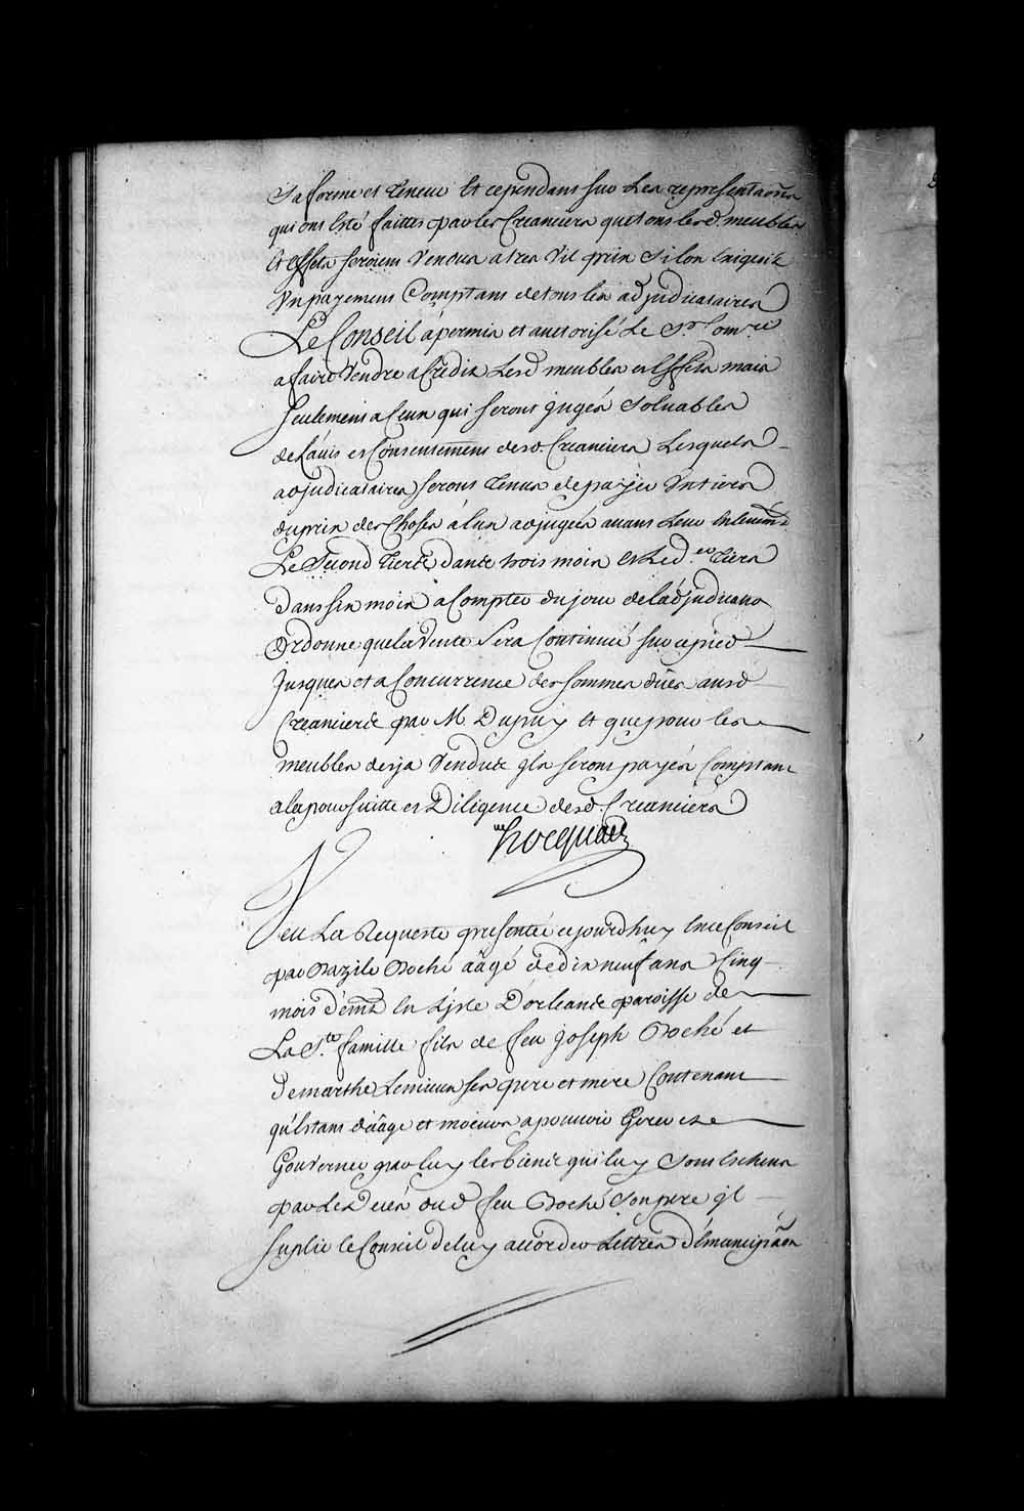 Sa forme et teneur Et cependant sur Les representaōns
qui ont Esté faittes par les Creanciers que tous lesd. meubles
Et effets seroient Vendus a tres Vil prix Si lon Exigeoit
Un payement Comptant de tous les adjudicataires
Le Conseil á permis et auctorisé Le Sr. Comre
a faire Vendre a Crédit Lesd meubles et Effets mais
seulement a Ceux qui seront jugés Soluables
de L'auis et Consentement desd. Creanciers Lesquels
adjudicataires seront tenus de payer Un tiers
du prix des Choses á Eux adjugées auant Leur Enleuemt.
Le Second tiers dans trois mois et Led. er tiers
dans six mois a Compter du jour de L'adjudicaōn
Ordonne que la Vente Sera Continuée sur ce pied
jusques et a Concurrence des sommes düės ausd
Creanciers par M. Dupuy Et que pour les
meubles desja Vendus jls seront payés Comptant
a la poursuitte et Diligence desd. Creanciers
hocquart
Veu La Requeste presentée cejourdhuy En ce Conseil
par Bazile Boché âagé de dix neuf ans Cinq
mois demt. En L'isle D'orleans paroisse de
La Ste. famille fils de feu joseph Boché et
de marthe Lemieux ses pere et mere Contenant
qu'Estant d'âage et moeurs a pouuoir Gerer et
Gouverner par luy les biens qui luy sont Escheus
par Le deces dud feu Boché Son pere jl
suplie le Conseil de luy accorder Lettres d'Emancipāon